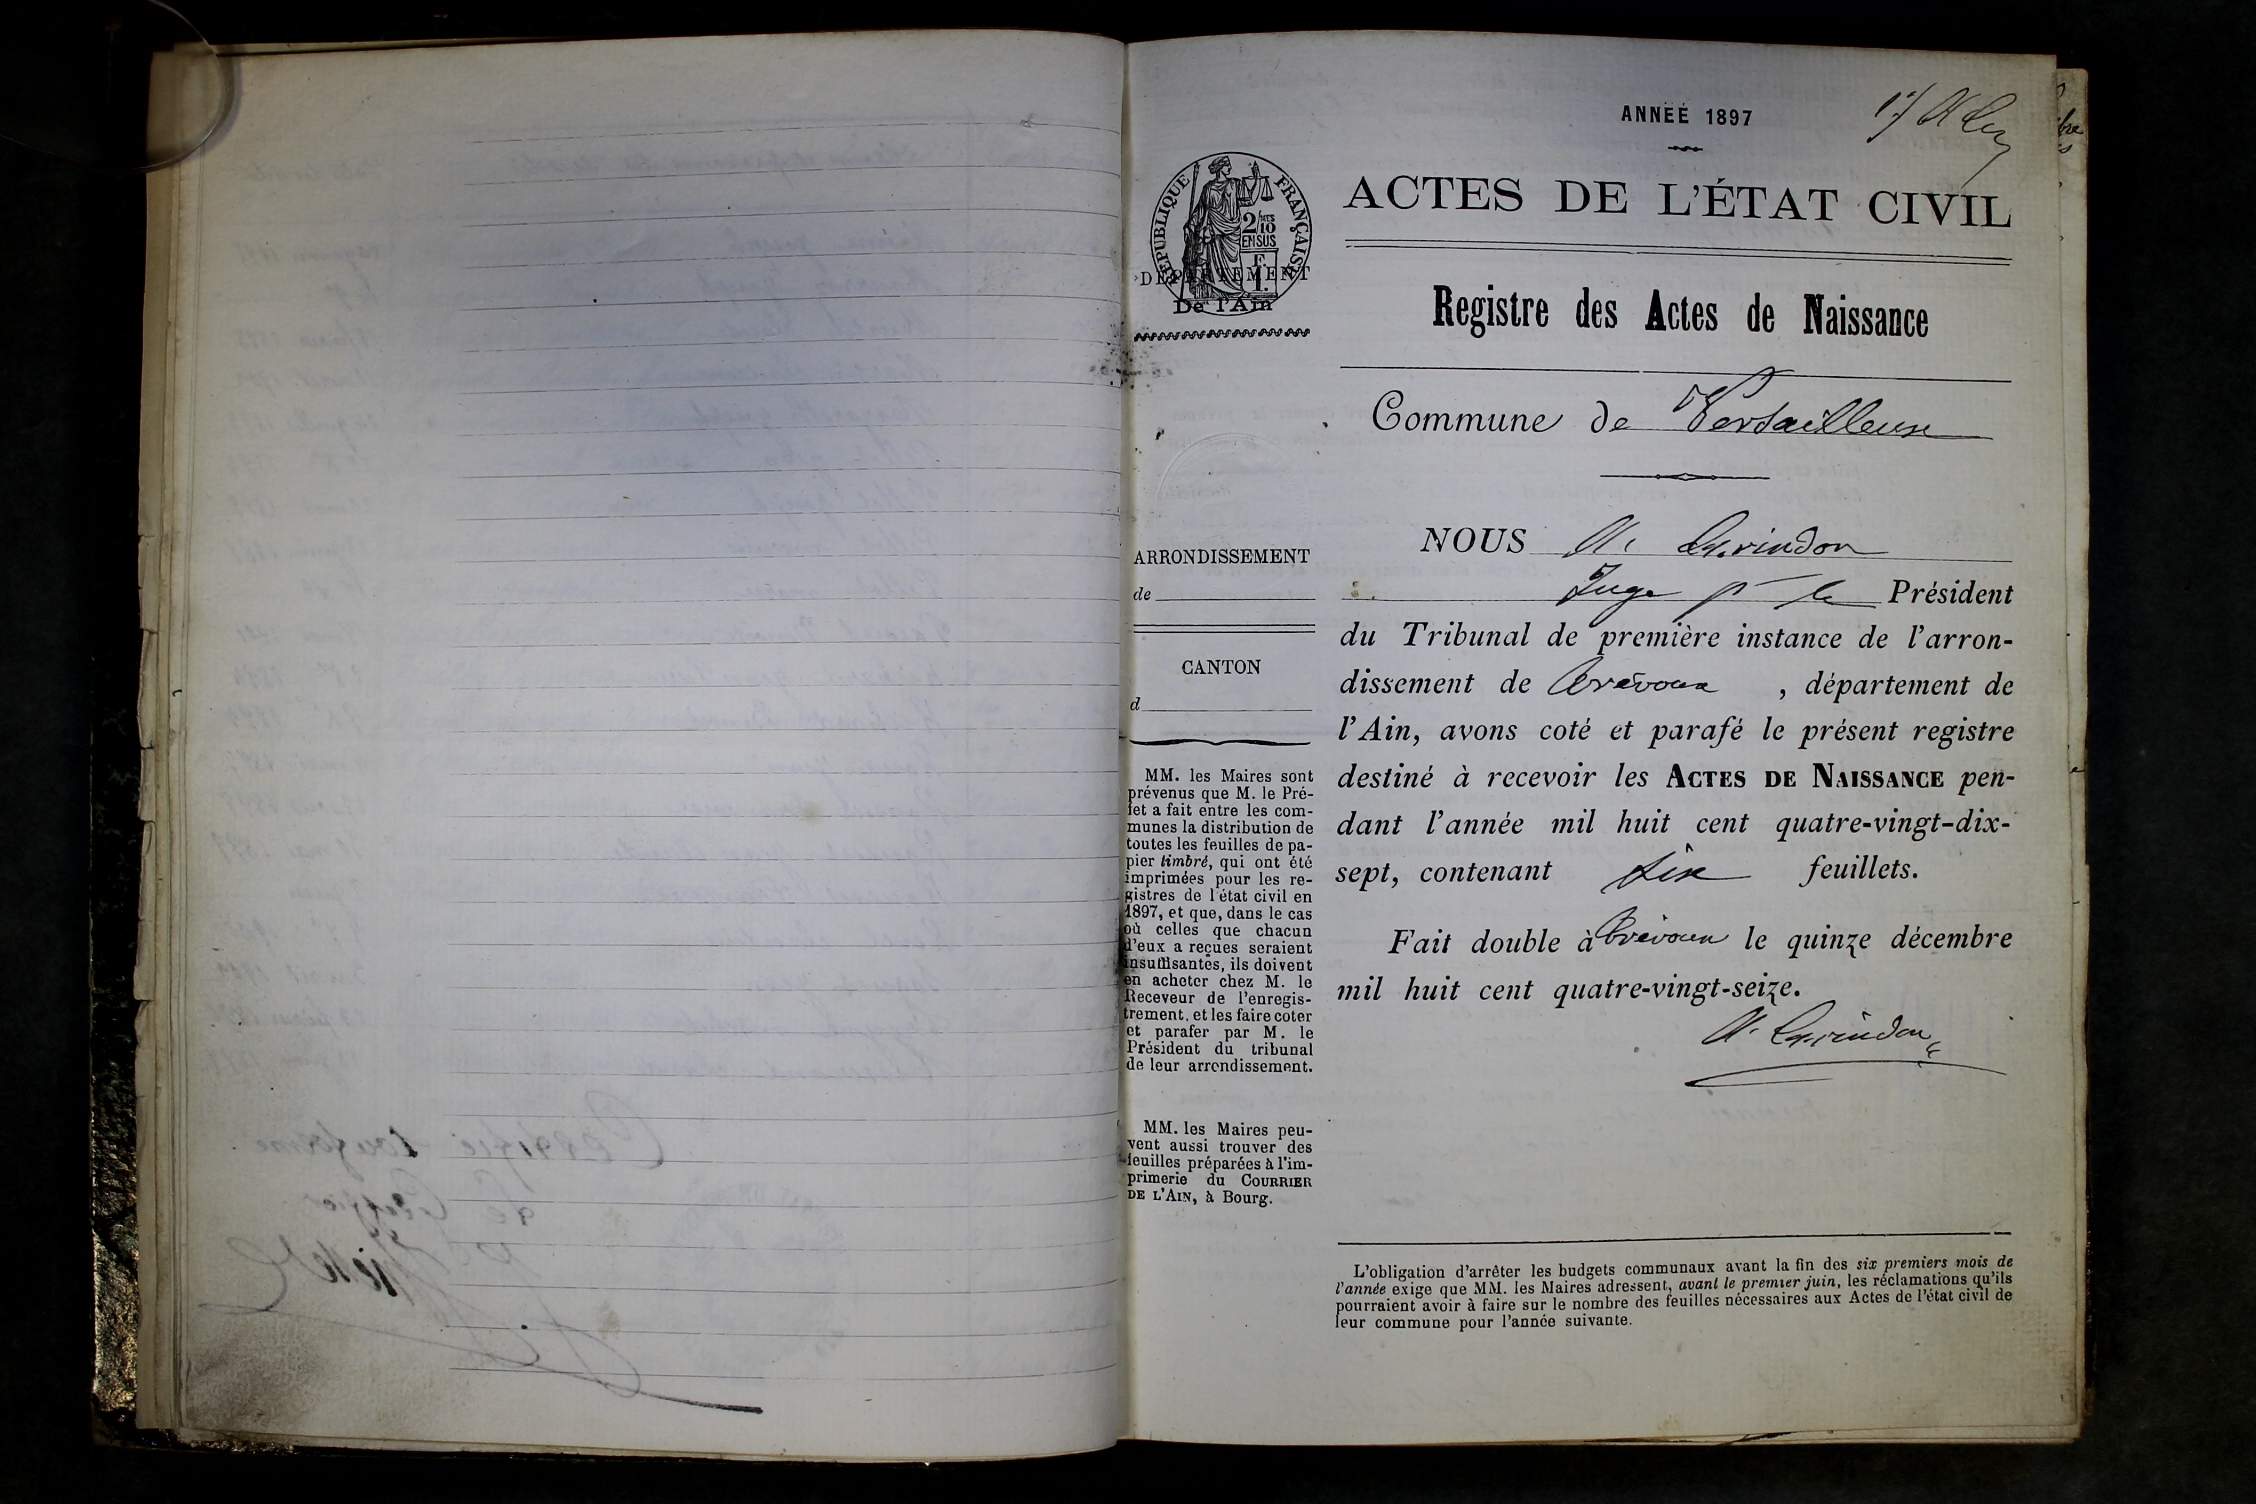 ANNÉE 1897
RÉPUBLIQUE FRANÇAISE
2/10
EN SUS
F.
1.
DÉPARTEMENT
De l'Ain
ACTES DE L'ÉTAT CIVIL
Registre des Actes de Naissance
Commune de Versailleux
ARRONDISSEMENT
de
CANTON
d
MM. les Maires sont
prévenus que M. le Pré-
fet a fait entre les com-
munes la distribution de
toutes les feuilles de pa-
pier timbré, qui ont été
imprimées pour les re-
gistres de l'état civil en
1897, et que, dans le cas
où celles que chacun
d'eux a reçues seraient
insuffisantes, ils doivent
en acheter chez M. le
Receveur de l'enregis-
trement, et les faire coter
et parafer par M. le
Président du tribunal
de leur arrondissement.
MM. les Maires peu-
vent aussi trouver des
feuilles préparées à l'im-
primerie du COURRIER
DE L'AIN, à Bourg.
NOUS
Juge pr le Président
du Tribunal de première instance de l'arron-
dissement de Trévoux, département de
l'Ain, avons coté et parafé le présent registre
destiné à recevoir les ACTES DE NAISSANCE pen-
dant l'année mil huit cent quatre-vingt-dix-
sept, contenant six feuillets.
Fait double à Trévoux le quinze décembre
mil huit cent quatre-vingt-seize.
L'obligation d'arrêter les budgets communaux avant la fin des six premiers mois de
l'année exige que MM. les Maires adressent, avant le premier juin, les réclamations qu'ils
pourraient avoir à faire sur le nombre des feuilles nécessaires aux Actes de l'état civil de
leur commune pour l'année suivante.